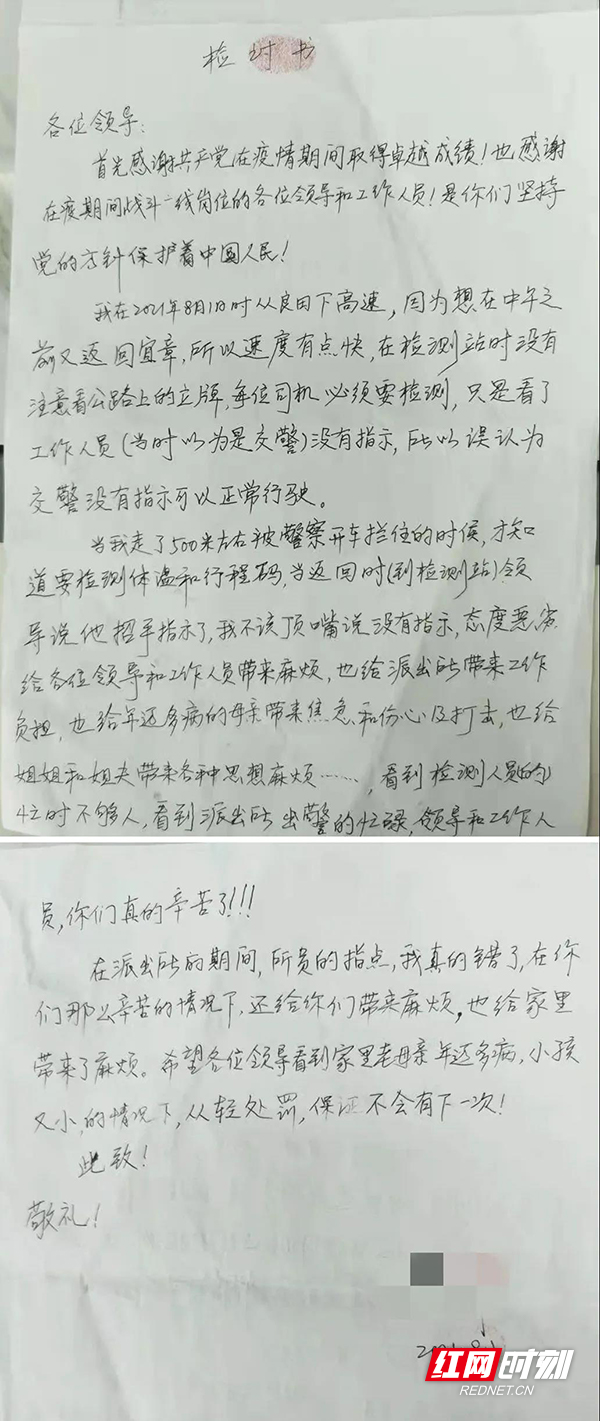 检讨书
各位领导:
首先感谢共产党在疫情期间取得卓越成绩!也感谢
在疫期间战斗一线岗位的各位领导和工作人员!是你们坚持
党的方针保护着中国人民!
我在2021年8月1日时从良田下高速,因为想在中午之
前又返回宜章,所以速度有点快,在检测站时没有
注意看公路上的立牌,每位司机必须要检测,只是看了
工作人员(当时以为是交警)没有指示,所以误认为
交警没有指示可以正常行驶。
当我走了500米左右被警察开车拦住的时候,才知
道要检测体温和行程码,当返回时(到检测站)领
导说他招手指示了,我不该顶嘴说没有指示,态度恶劣
给各位领导和工作人员带来麻烦,也给派出所带来工作
负担,也给年迈多病的母亲带来焦急和伤心及打击,也给
姐姐和姐夫带来各种思想麻烦……,看到检测人员的
忙时不够人,看到派出所出警的忙碌,领导和工作人
员,你们真的辛苦了!!!
在派出所的期间,所员的指点,我真的错了,在你
们那么辛苦的情况下,还给你们带来麻烦,也给家里
带来了麻烦。希望各位领导看到家里老母亲年迈多病,小孩
又小,的情况下,从轻处罚,保证不会有下一次!
此致!
敬礼!
红网时刻
REDNET.CN